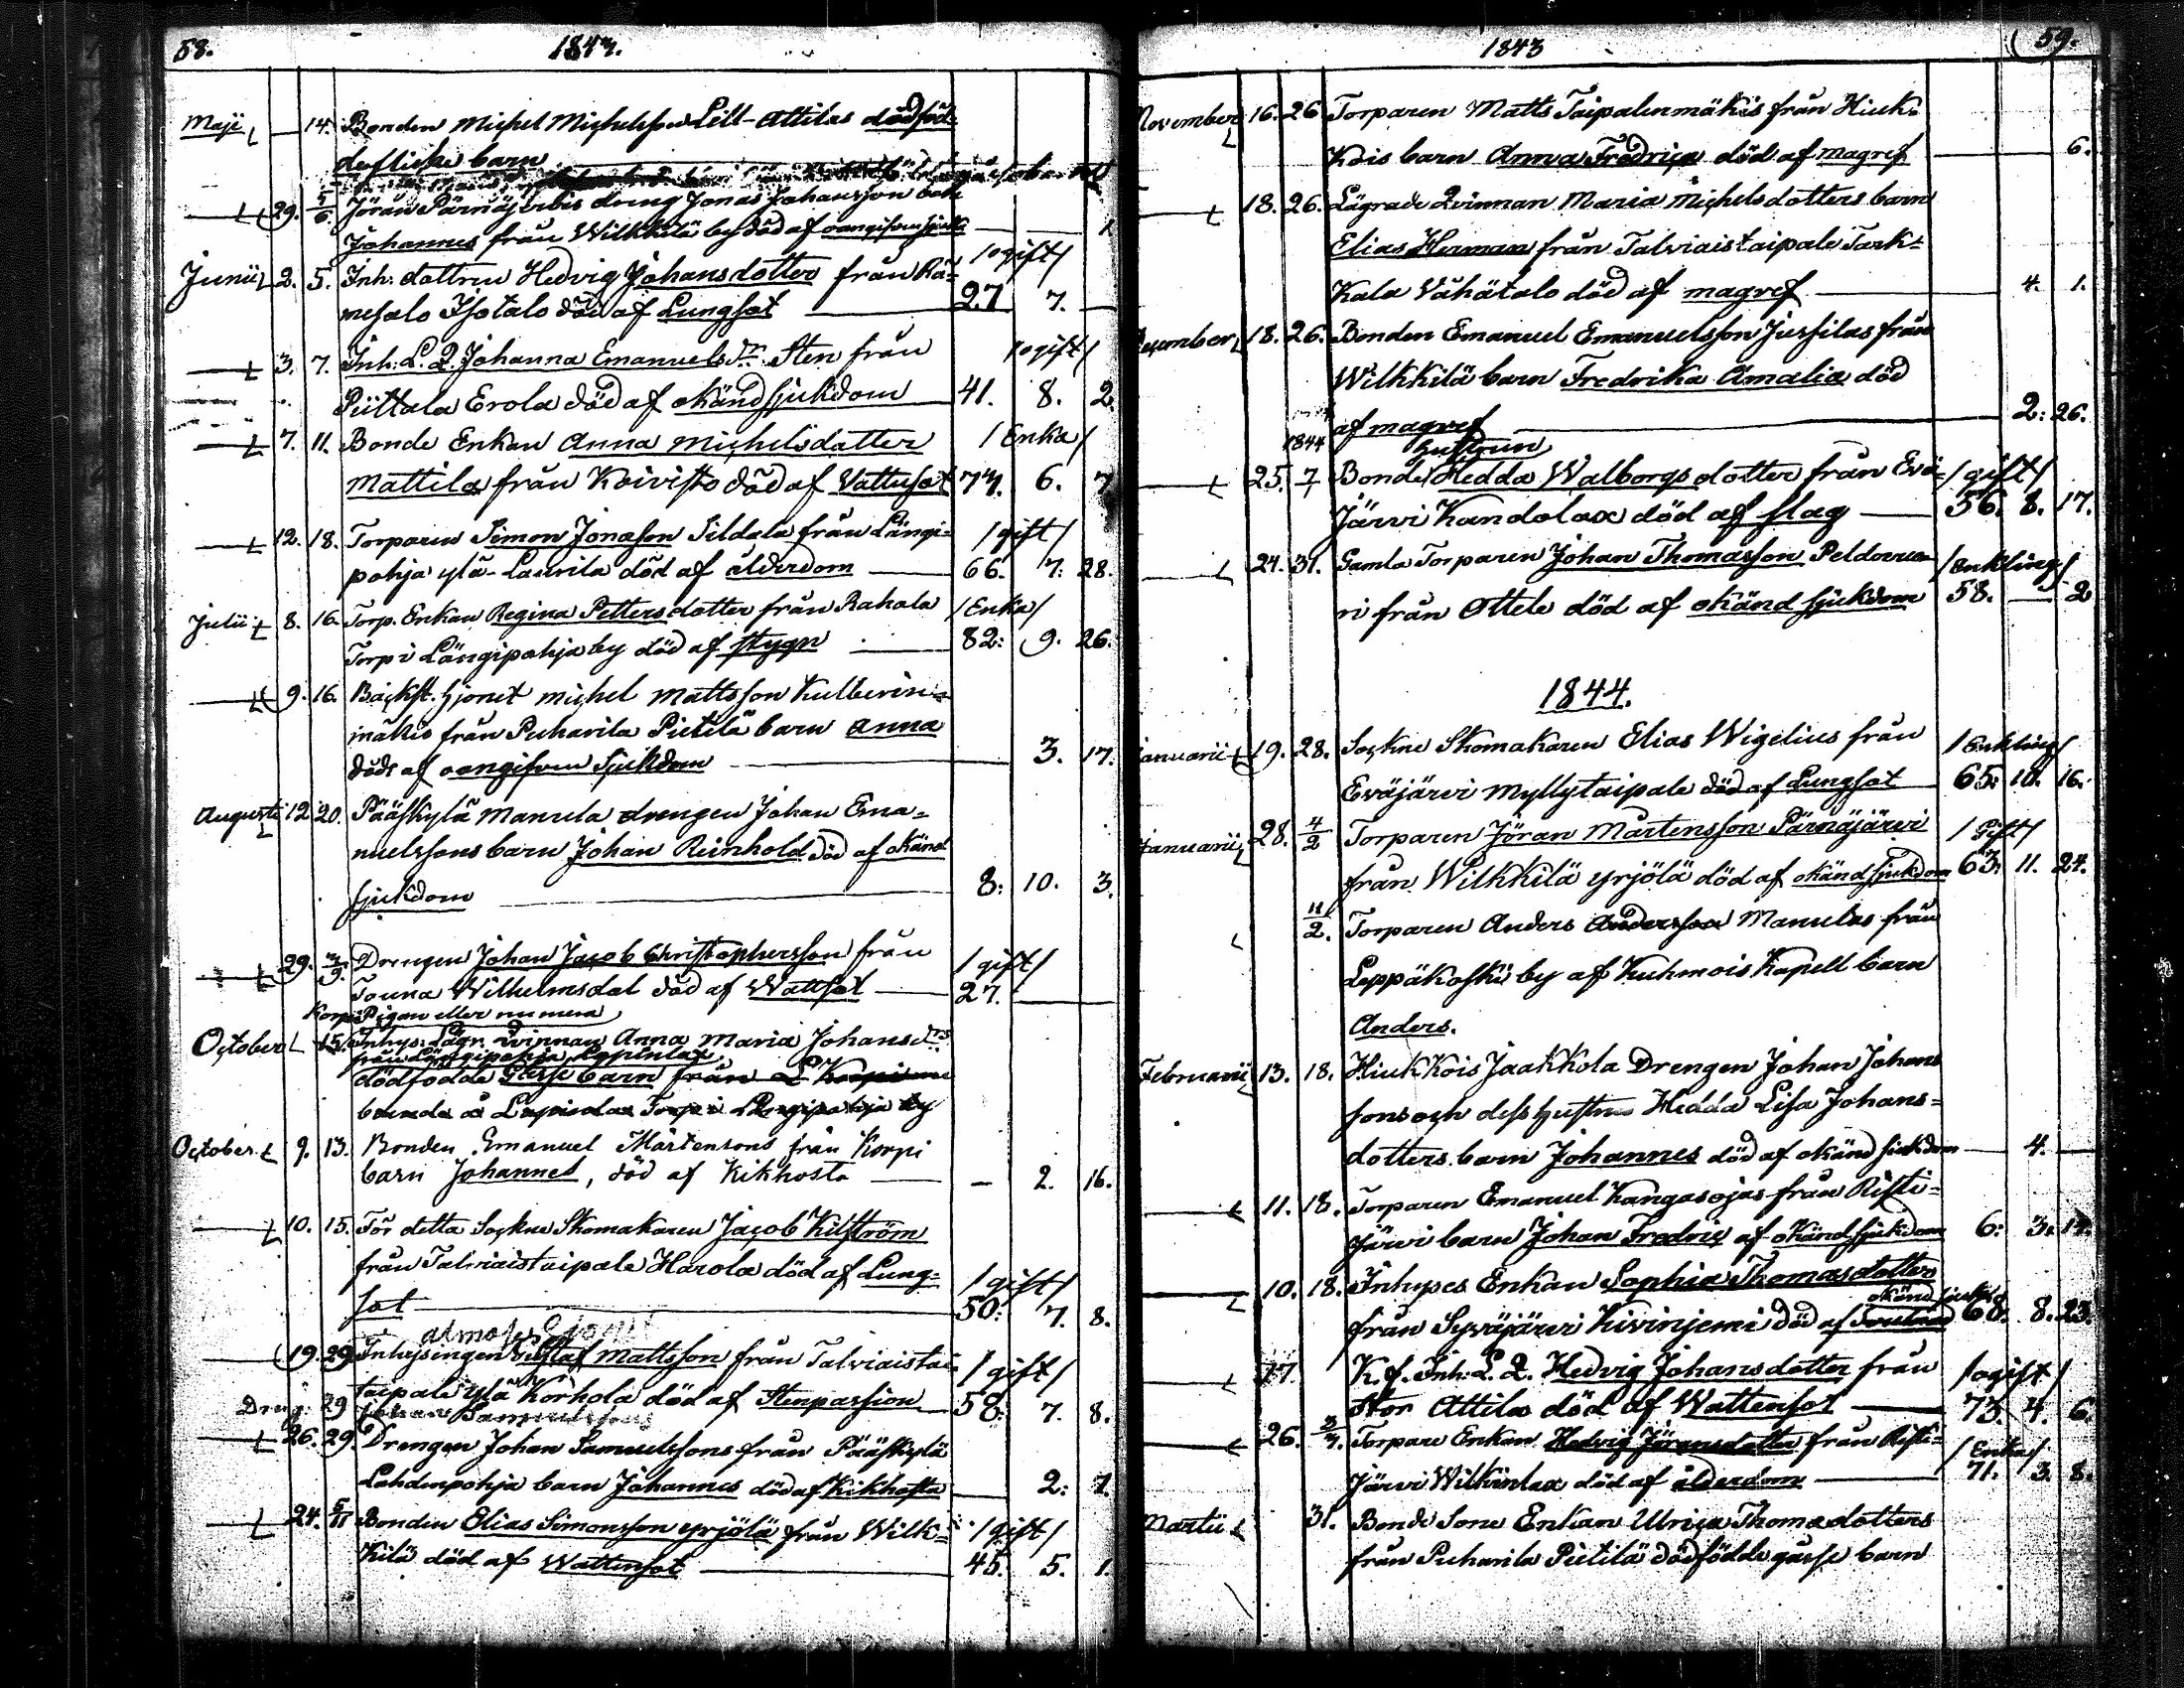 58. 1843.
Maji 14. Bonden Michel Michelsson Lill-Attilas dödföd-
de flicke barn
29. 5/6. Jöran Pärnäjervis dreng Jonas Johansson barn
Johannes från Wilkkilä by död af oangifven sjukd. 1
Junii 2. 5. Inh. dottren Hedvig Johansdotter från Rä- /ogift/
mesalo Isotalo död af Lungsot 27 7. —
3. 7. Inh: L. Q. Johanna Emanuelsdr. Sten från /ogift/
Piittala Erola död af okänd sjukdom 41. 8. 2.
7. 11. Bonde Enkan Anna Michelsdotter /Enka/
Mattila från Koivisto död af Vattusot 74. 6. 7
12. 18. Torparen Simon Jonasson Sildala från Längi- /gift/
pohja ylä-Laurila död af ålderdom 66. 7. 28.
Julii 8. 16. Torp. Enkan Regina Pettersdotter från Rahola /Enka/
Torp i Längipohja by död af stygn 82: 9. 26.
9. 16. Backst. hjonet Michel Mattsson Kulberin-
mäkis från Puharila Pietilä barn Anna
död af oangifven Sjukdom 3. 17.
Augusti 12. 20. Pääskylä Manuela drengen Johan Ema-
nuelssons barn Johan Reinhold död af okänd
sjukdom 8: 10. 3.
29. 3/9. Drengen Johan Jacob Christophersson från /gift/
Touna Wilhelmsdal död af Wattsot 27.
Korpi Pigan eller numera
October 15. Inhys. Lägr. Qvinnan Anna Maria Johansdrs
från Längipohja Lepinlax
dödfödde Gosse barn från
boende å Lepinlax Torp i Längipohja by
October. 9. 13. Bonden Emanuel Mårtensons från Korpi
barn Johannes, död af Kikhosta — 2. 16.
10. 15. För detta Sockne Skomakaren Jacob Kilström
från Talviaistaipale Harola död af Lung- /gift/
sot 50: 7. 8.
almosehjonet
19. 29. Inhysingen Gustaf Mattsson från Talviaistai- /gift/
taipale ylä Korhola död af Stenpassion 58: 7. 8.
Dreng. 29 Johan Samuelssons
26. 29. Drengen Johan Samuelssons från Pääskylä
Lahdenpohja barn Johannes död af Kikhosta 2: 1.
24. 5/11 Bonden Elias Simonsson yrjölä från Wilk- /gift/
kilä död af Wattensot 45. 5. 1.
1843 59.
November 16. 26 Torparen Matts Taipalenmäkis från Hiuk-
kois barn Anna Fredrica död af magref 6.
18. 26. Lägrade Qvinnan Maria Michelsdotters barn
Elias Herman från Talviaistaipale Tark-
kala Vähätalo död af magref 4. 1.
December 18. 26. Bonden Emanuel Emanuelsson Jussilas från
Wilkkilä barn Fredrika Amalia död
af magref 2: 26.
1844 hustrun
25. 7/1 Bonde Hedda Walborgsdotter från Evä- /gift/
järvi Kandolax död af slag 56. 8. 17.
24. 31. Gamla Torparen Johan Thomasson Peldovuo- /enkling/
ri från Ottele död af okänd sjukdom 58. — 2
1844.
Januarii 19. 28. Sockne Skomakaren Elias Wigelius från /Enkling/
Eväjärvi Myllytaipale död af Lungsot 65: 10. 16.
Januarii 28. 4/2 Torparen Jöran Mårtensson Pärnäjärvi /Gift/
från Wilkkilä yrjölä död af okänd sjukdom 63. 11. 24.
11/2. Torparen Anders Andersson Manulas från
Leppäkoski by af Kuhmois Kapell barn
Anders.
Februarii 13. 18. Hiukkois Jaakkola Drengen Johan Johans
sons och dess hustrus Hedda Lisa Johans-
dotters barn Johannes död af okänd sjukdom 4. —
11. 18. Torparen Emanuel Kangasojas från Risti-
järvi barn Johan Fredric af okänd sjukdom 6: 3. 14.
10. 18. Inhyses Enkan Sophia Thomasdotter
okänd sjukd.
från Syväjärvi Kiviniemi död af 60. 8. 23.
17 K. f. Inh: L. Q. Hedvig Johansdotter från /ogift/
Stor Attila död af Wattensot 73. 4. 6.
26. 3/3. Torpare Enkan Hedvig Jöransdotter från Risti- /Enka/
järvi Wilkinlax död af ålderdom 71. 3. 8.
Martii 31. Bonde Sone Enkan Ulrica Thomasdotters
från Puharila Pietilä dödfödde gosse barn